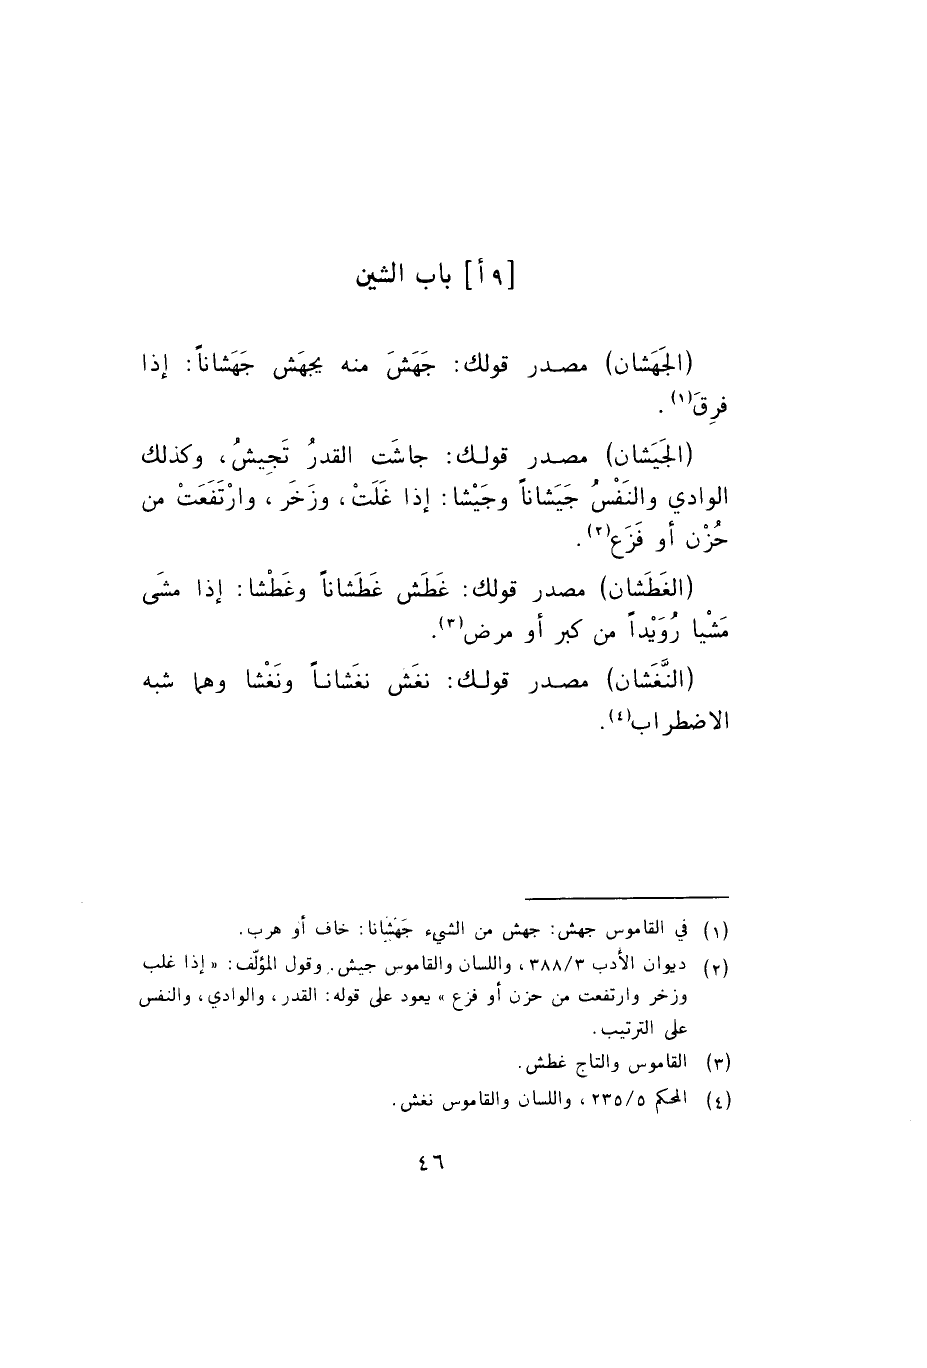 [٩ أ] باب الشين
(الجَهَشان) مصدر قولك: جَهَشَ منه يجهَش جَهَشاناً: إذا
فرِقَ(١).
(الجَيَشان) مصدر قولك: جاشَت القدرُ تَجِيشُ، وكذلك
الوادي والنَفْسُ جَيَشاناً وجَيْشا: إذا غَلَتْ، وزَخَر، وارْتَفَعَتْ من
حُزْن أو فَزَع(٢).
(الغَطَشان) مصدر قولك: غَطَش غَطَشاناً وغَطْشا: إذا مشَى
مَشْيا رُوَيْداً من كبر أو مرض(٣).
(النَّغَشان) مصدر قولك: نغَش نغَشاناً ونَغْشا وهما شبه
الاضطراب(٤).
(١) في القاموس جهش: جهش من الشيء جَهَشْانا: خاف أو هرب.
(٢) ديوان الأدب ٣٨٨/٣، واللسان والقاموس جيش. وقول المؤلّف: «إذا غلب
وزخر وارتفعت من حزن أو فزع» يعود على قوله: القدر، والوادي، والنفس
على الترتيب.
(٣) القاموس والتاج غطش.
(٤) المحكم ٢٣٥/٥، واللسان والقاموس نغش.
٤٦